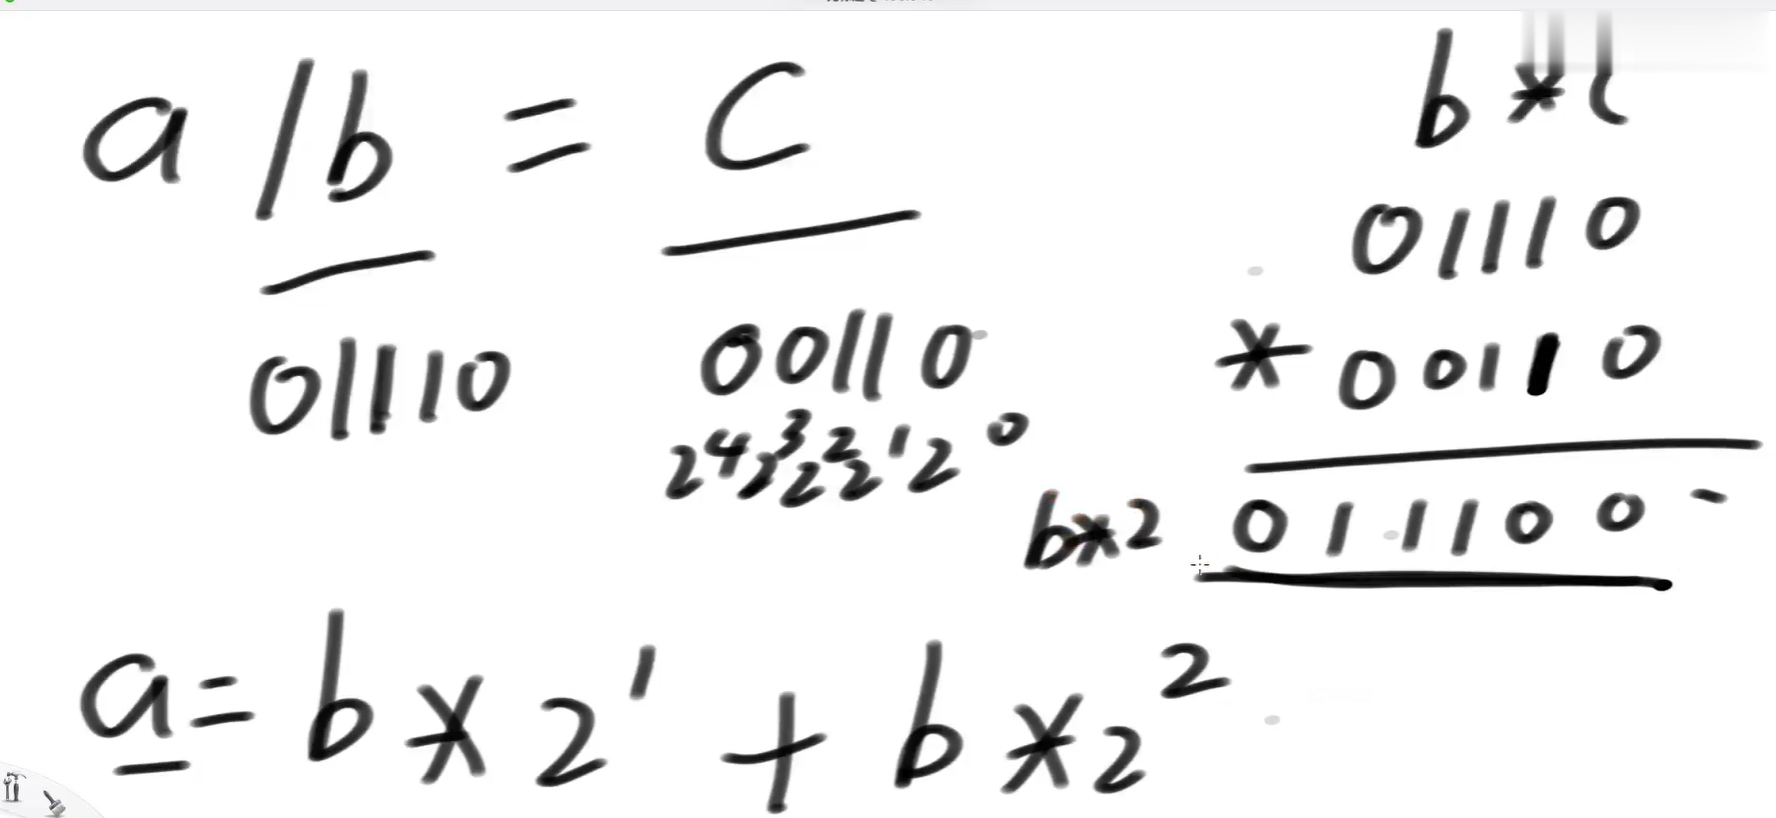 a / b = c
01110
00110
2^4 2^3 2^2 2^1 2^0
b * c
01110
* 00110
b*2 011100
a = b * 2^1 + b * 2^2